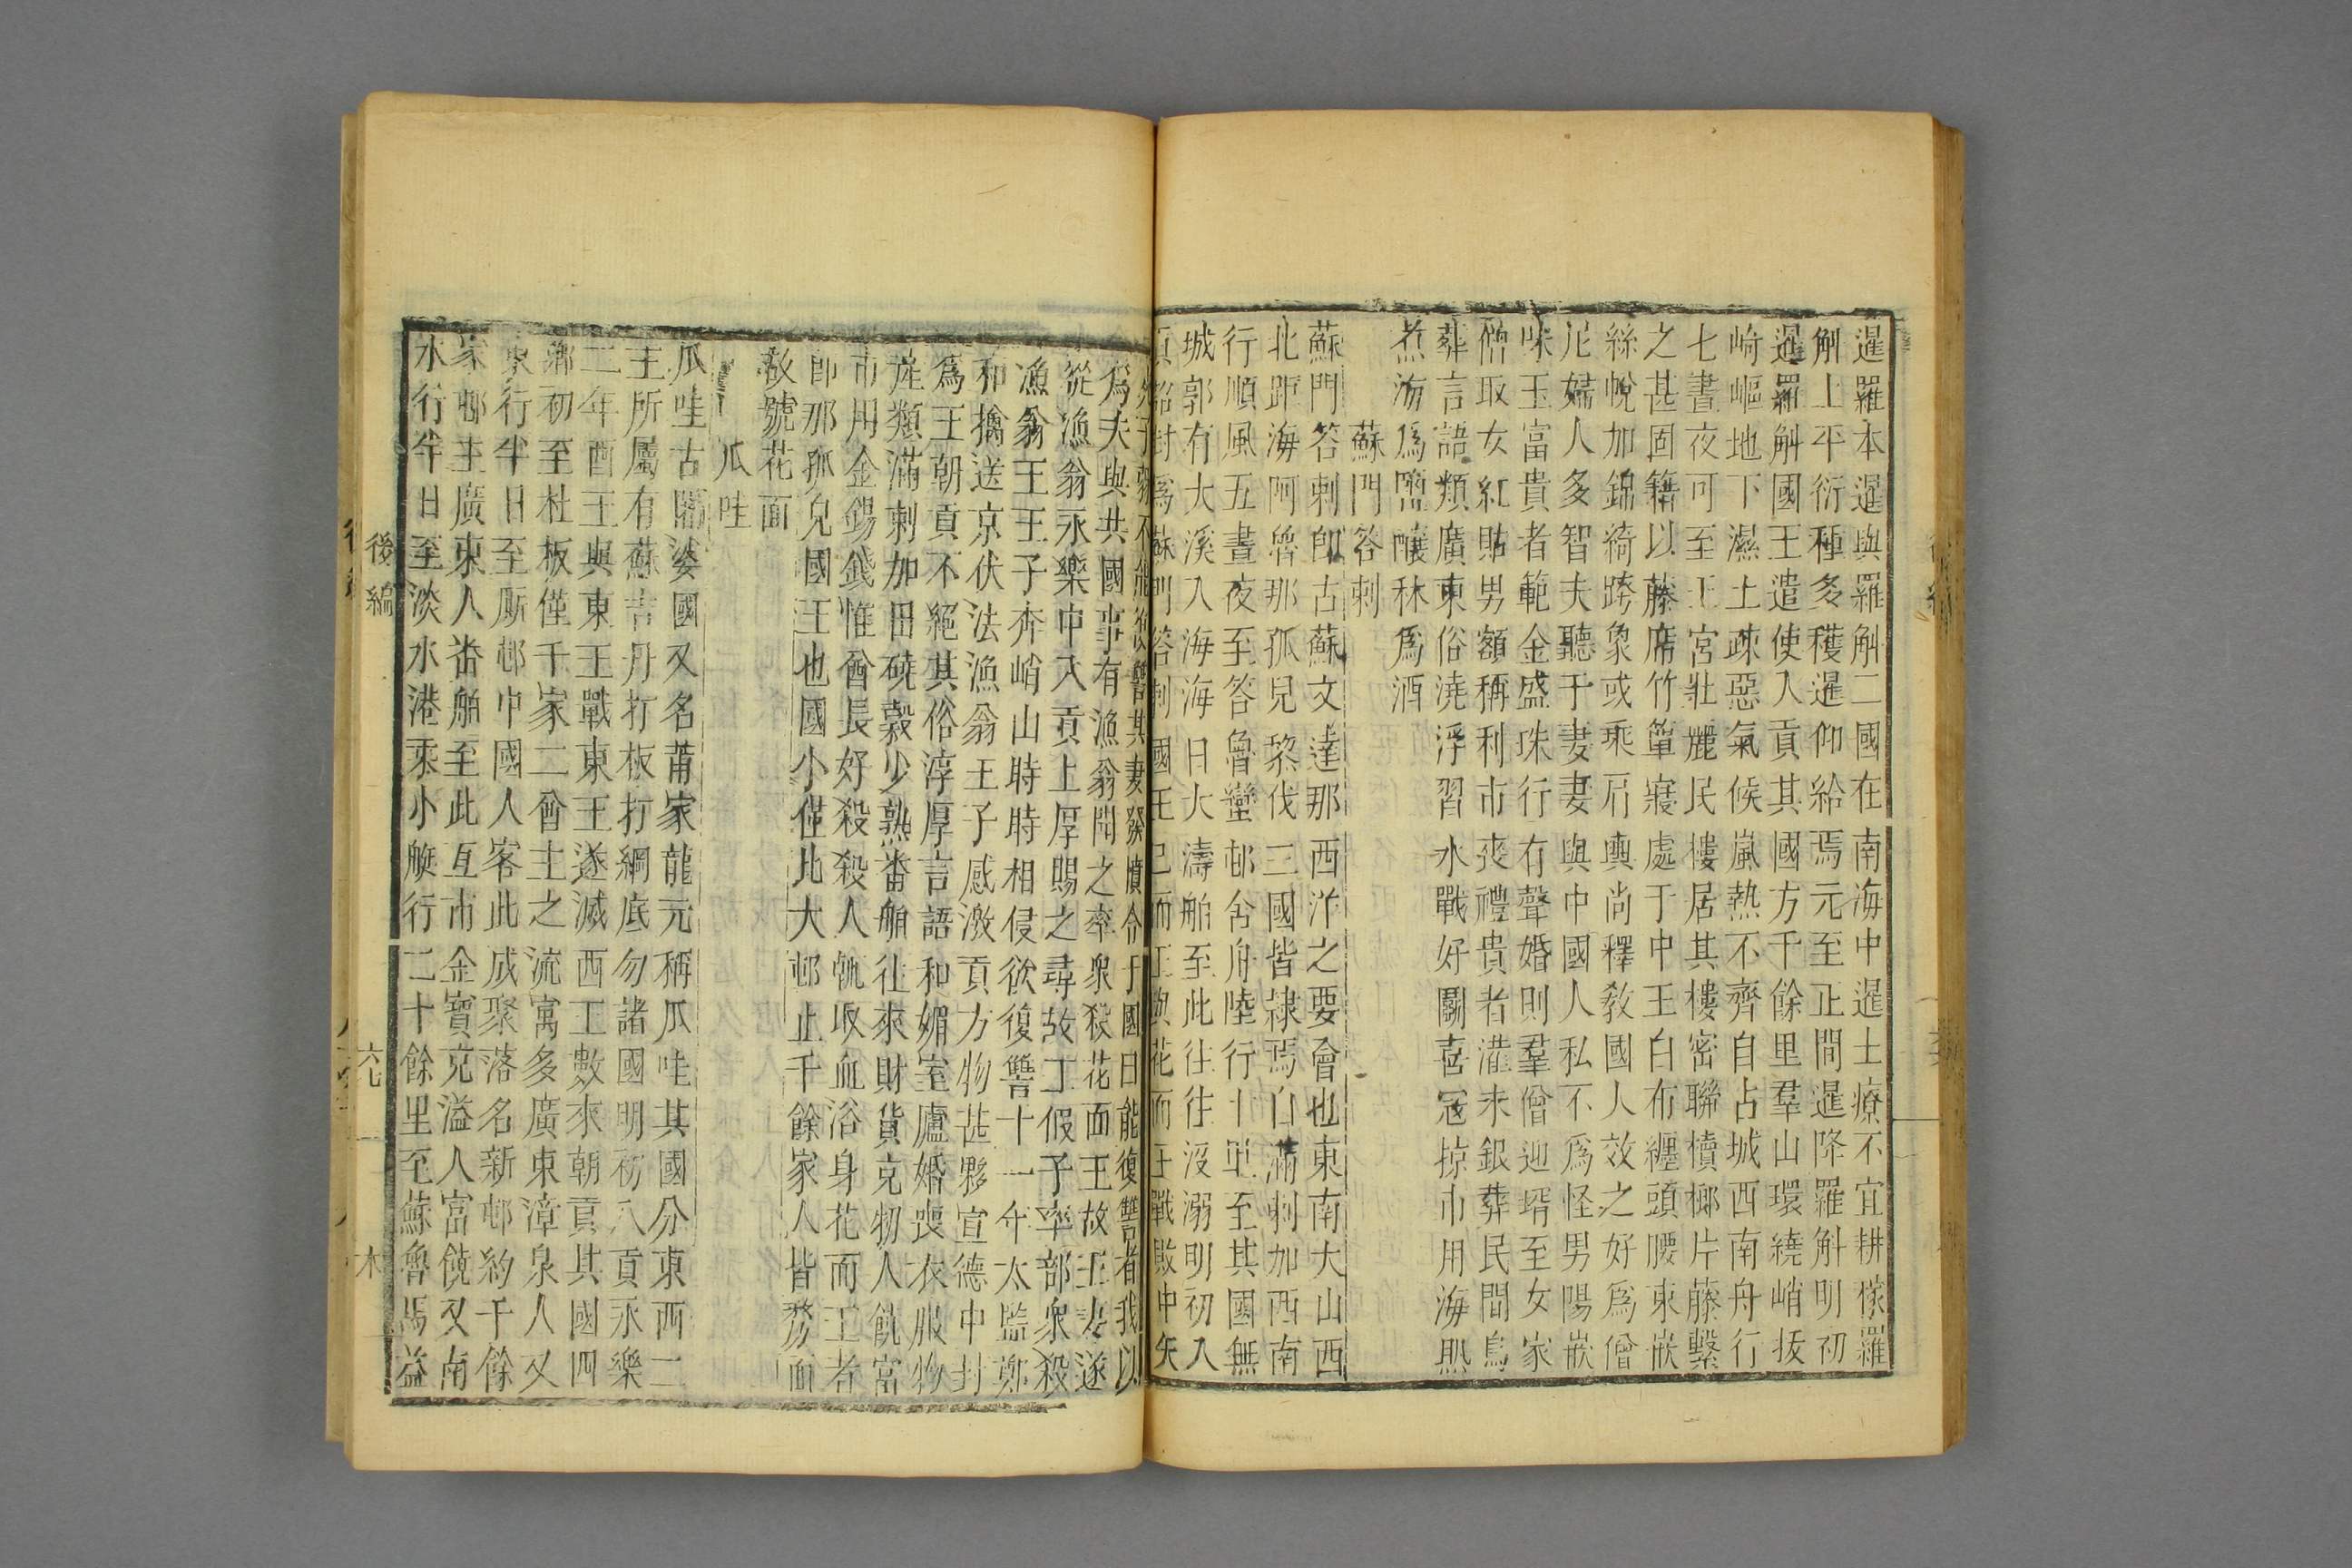 暹羅本暹與羅斛二國在南海中暹土瘠不宜耕檨羅
斛上平衍種多穫暹仰給焉元至正間暹降羅斛明初
暹羅斛國王遣使入貢其國方千餘里羣山環繞峭拔
崎嶇地下濕土疎惡氣候嵐熱不齊自占城西南舟行
七晝夜可至王宮壯麗民樓居其樓密聯檳榔片藤繫
之甚固籍以藤席竹簟寢處于中王白布纏頭腰束嵌
絲帨加錦綺跨象或乘肩輿尚釋教國人效之好為僧
尼婦人多智夫聽于妻妻與中國人私不爲怪男陽嵌
珠玉富貴者範金盛珠行有聲婚則羣僧迎壻至女家
僧取女紅貼男額稱利市喪禮貴者灌水銀葬民間鳥
葬言語類廣東俗澆浮習水戰好鬬喜寇掠市用海𧴩
煮海爲鹽釀秫爲酒
蘇門答剌
蘇門答剌卽古蘇文達那西洋之要會也東南大山西
北距海阿魯那孤兒黎伐三國皆隸焉自滿剌加西南
行順風五晝夜至答魯蠻邨舍舟陸行十里至其國無
城郭有大溪入海海日大濤舶至此往往沒溺明初入
貢詔封爲蘇門答剌國王已而王與花面王戰敗中矢
死子弱不能復讐其妻發憤令于國曰能復讐者我以
爲夫與共國事有漁翁聞之率衆殺花面王故王妻遂
從漁翁永樂中入貢上厚賜之尋故王假子率部衆殺
漁翁王王子奔峭山時時相侵欲復讐十一年太監鄭
和擒送京伏法漁翁王子感激貢方物甚夥宣德中封
爲王朝貢不絕其俗淳厚言語和媚室廬婚喪衣服物
産類滿剌加田磽穀少熟番舶往來財貨充牣人飢富
市用金錫錢惟酋長好殺殺人輒取血浴身花面王者
卽那孤兒國王也國小僅比大邨止千餘家人皆剺面
故號花面
瓜哇
瓜哇古闍婆國又名莆家龍元稱瓜哇其國分東西二
王所屬有蘇吉丹打板打綱底勿諸國明初入貢永樂
二年酉王與東王戰東王遂滅西王數來朝貢其國四
鄉初至杜板僅千家二酋主之流寓多廣東漳泉人又
東行半日至厮邨中國人客此成聚落名新邨約千餘
家邨主廣東人番舶至此互市金寶充溢人富饒又南
水行半日至淡水港乘小艇行二十餘里至蘇魯馬益
後編
六
木